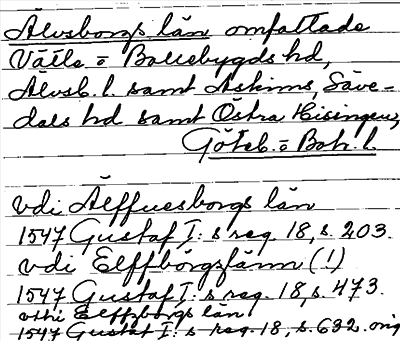 Älvsborgs län omfattade
Vättle o Bollebygds hd,
Älvsb. l. samt Askims, Säve-
dals hd samt Östra Hisingens,
Göteb. o Boh. l.
vdi Älffuesborgs län
1547 Gustaf I:s reg. 18, s. 203.
vdi Elffborgslänn (!)
1547 Gustaf I:s reg. 18, s. 473.
vthi Elffzborgs län
1547 Gustaf I:s reg. 18, s. 632. orig